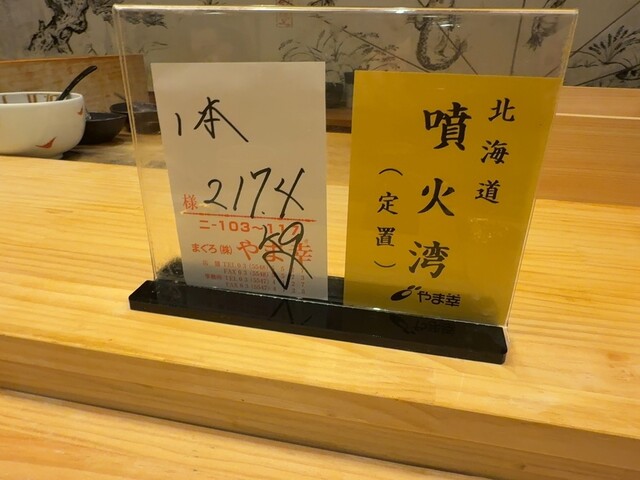 1本
217.4
様
ニ-103~112
59
まぐろ(株) やま幸
北海道
噴火湾
(定置)
やま幸